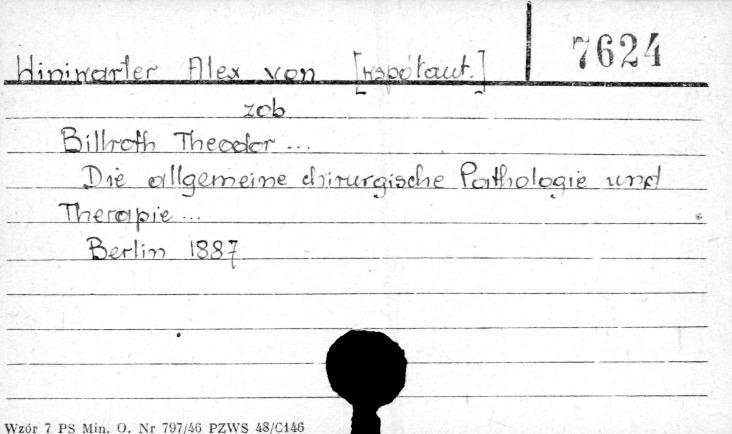 Hiniwarter Alex von [współaut.] 7624
zob
Billroth Theodor ...
Die allgemeine chirurgische Pathologie und
Therapie ...
Berlin 1887
Wzór 7 PS Min. O. Nr 797/46 PZWS 48/C146